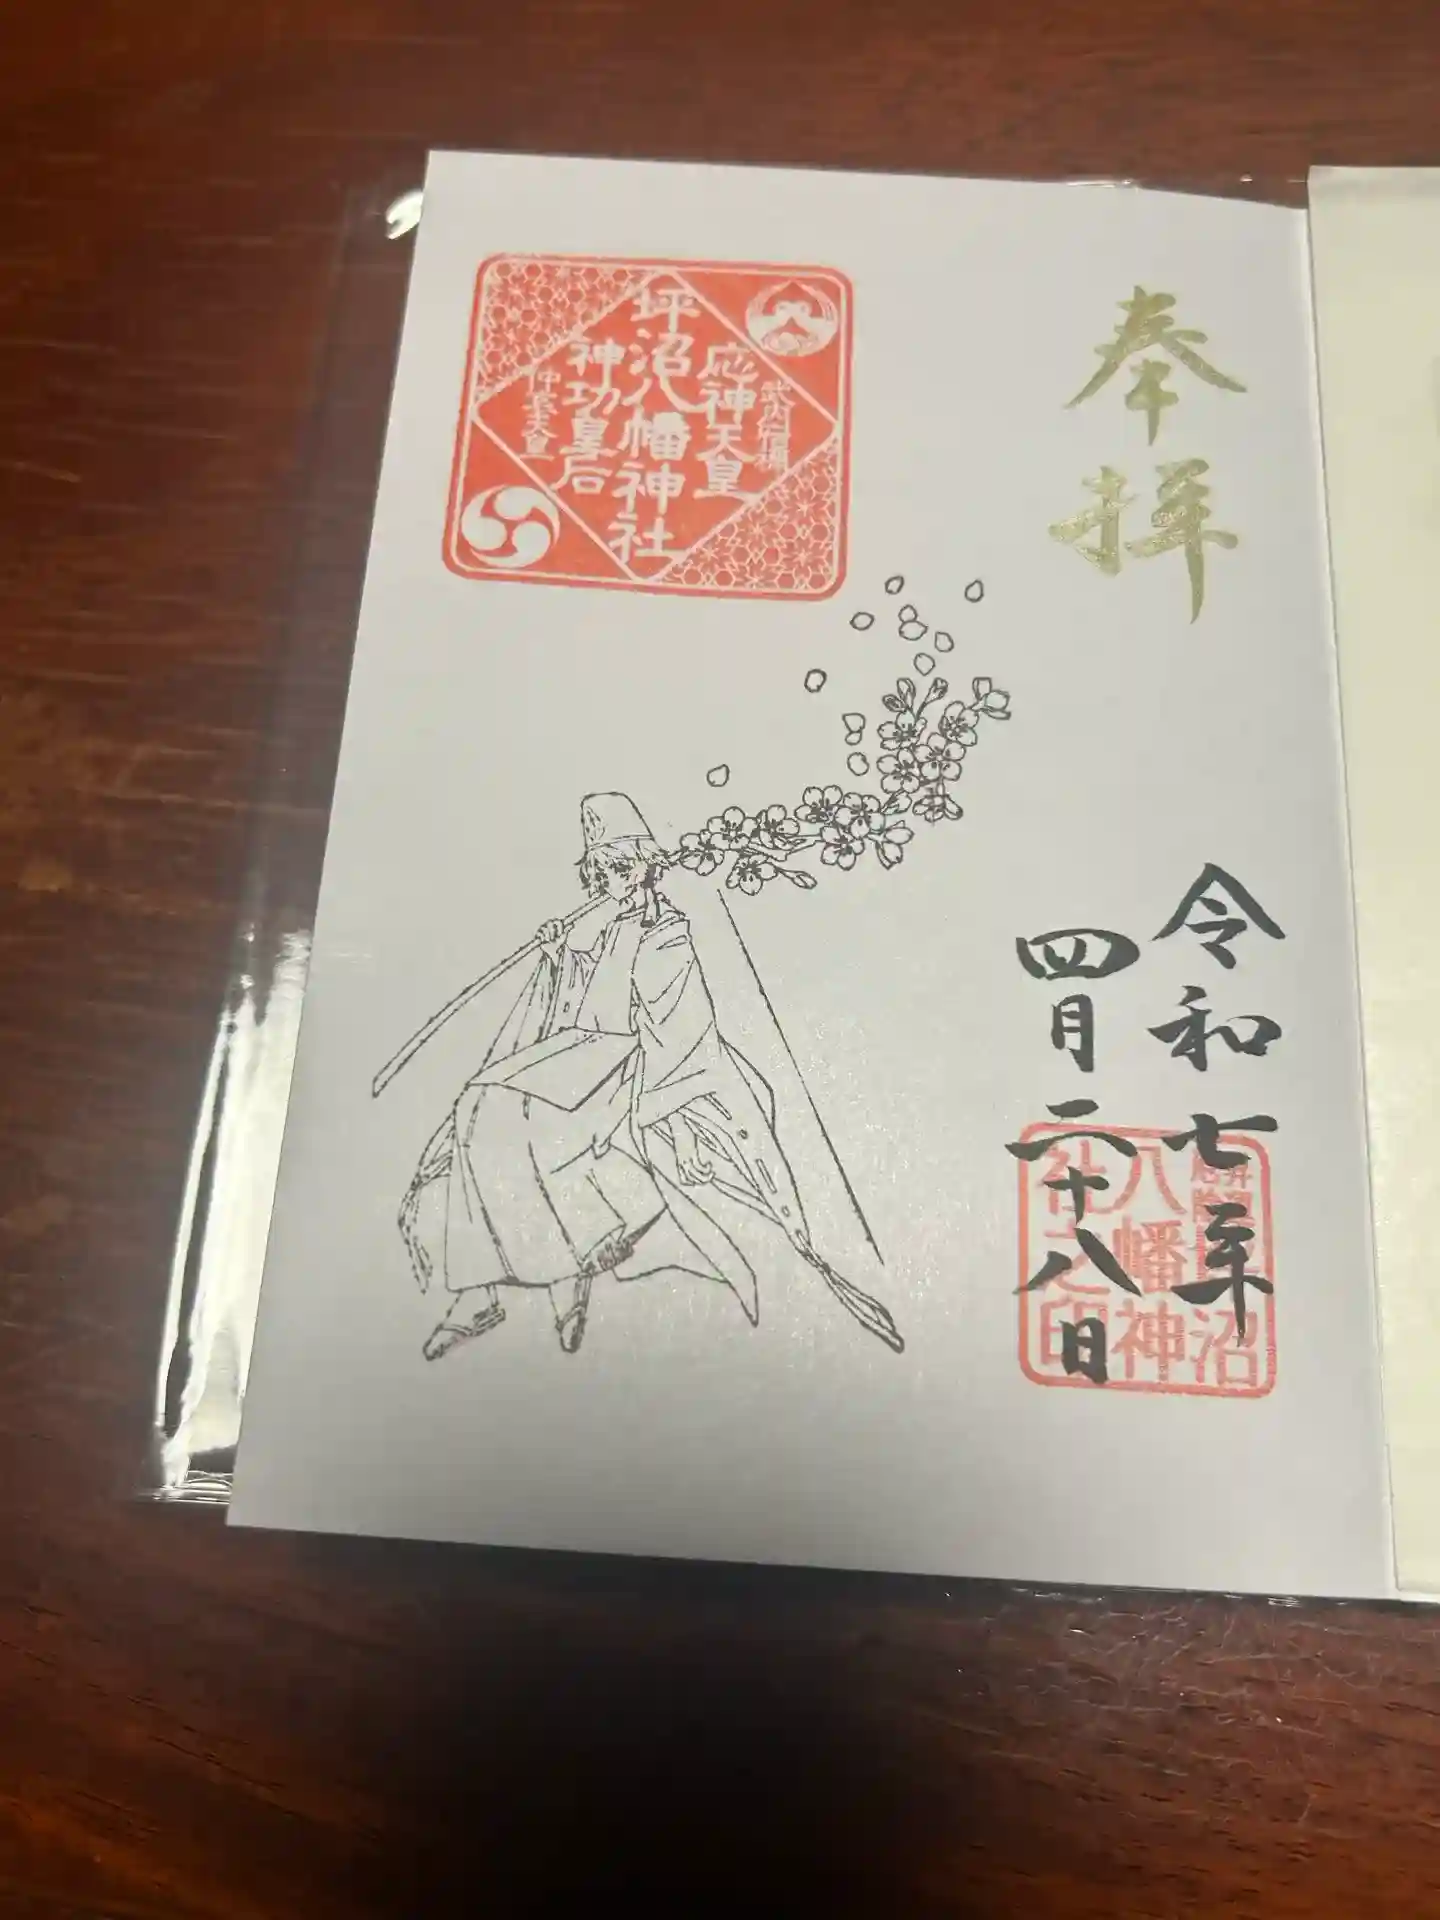 奉拝
令和七年
四月二十八日
武内宿禰
応神天皇
坪沼八幡神社
神功皇后
仲哀天皇
坪沼
八幡神
社之印